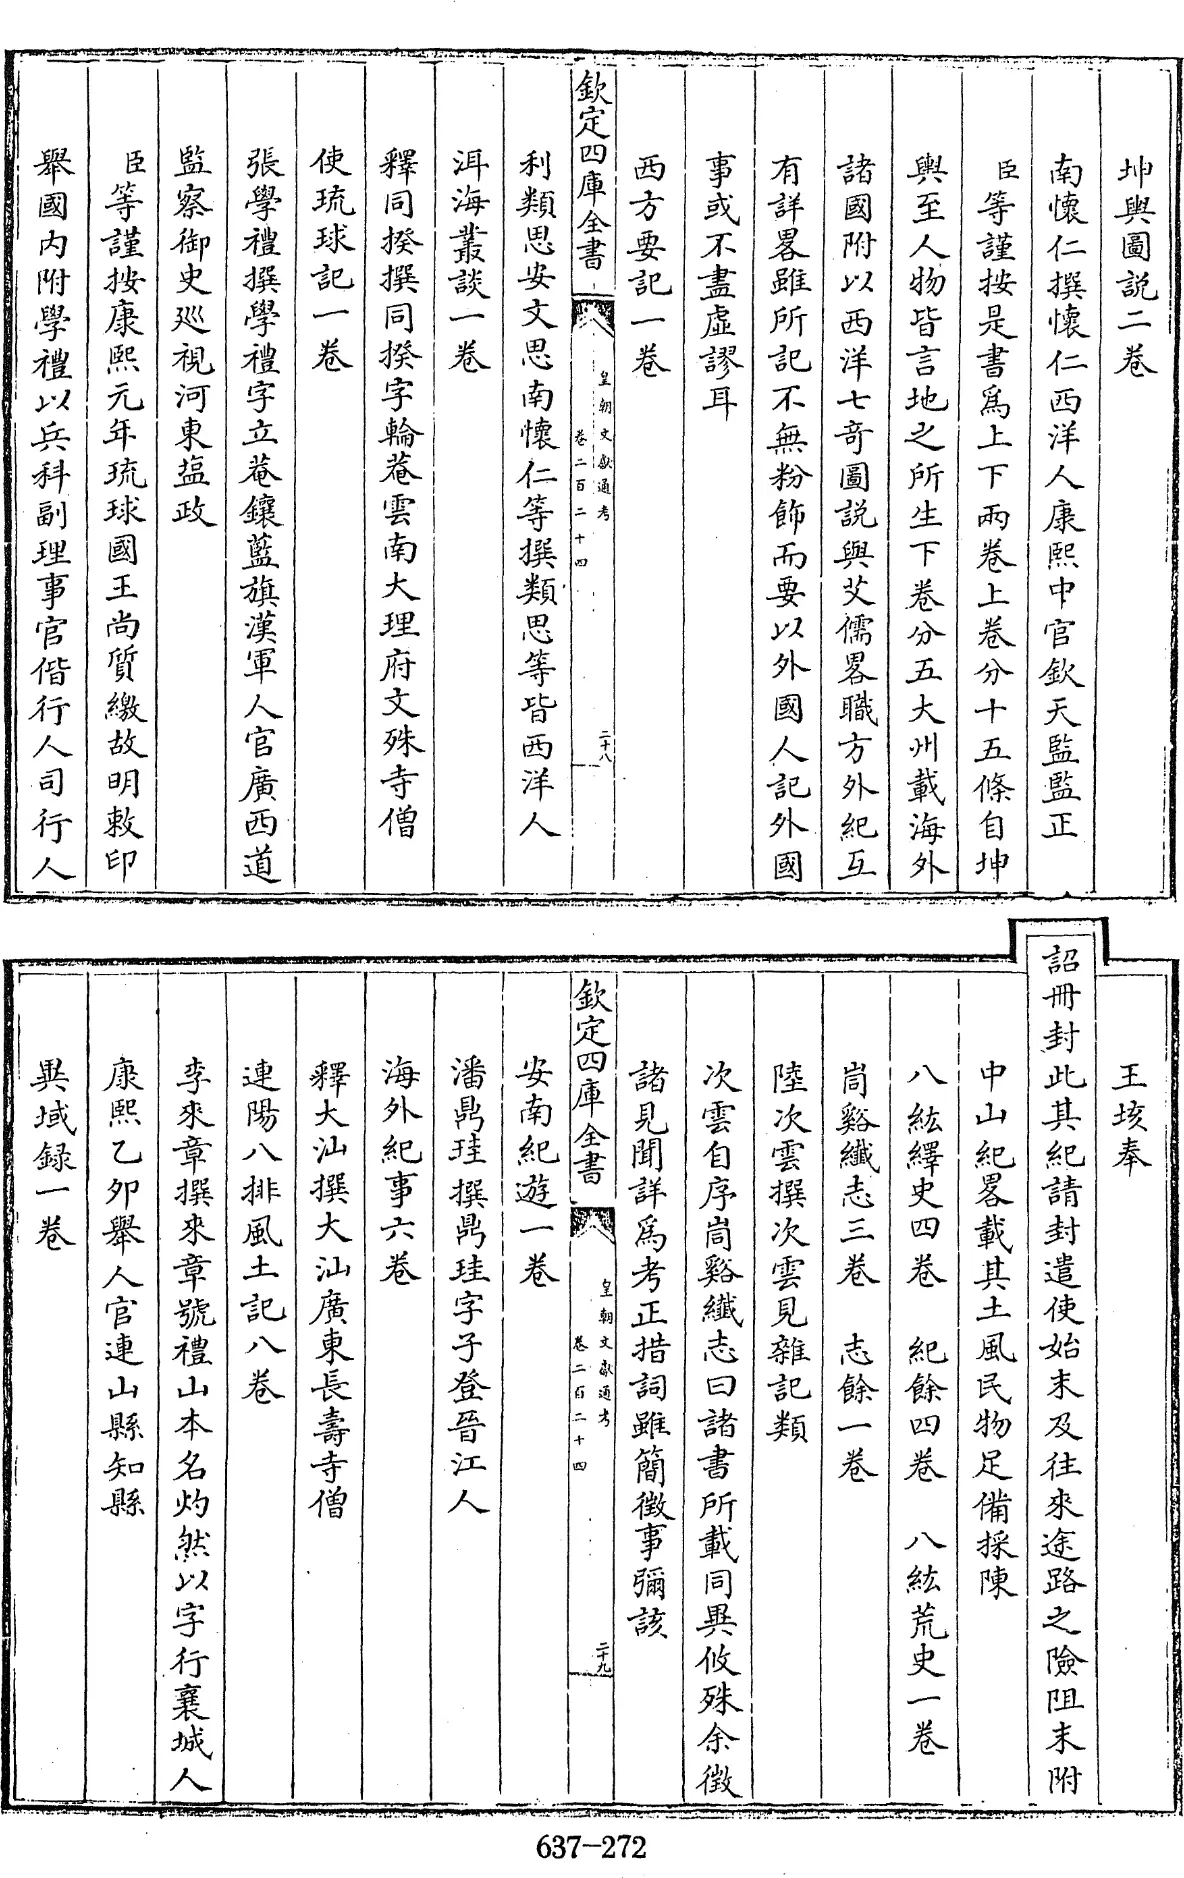 坤輿圖說二卷
南懷仁撰懷仁西洋人康熙中官欽天監監正
臣等謹按是書為上下兩卷上卷分十五條自坤
輿至人物皆言地之所生下卷分五大州載海外
諸國附以西洋七奇圖說與艾儒畧職方外紀互
有詳畧雖所記不無粉飾而要以外國人記外國
事或不盡虛謬耳
西方要記一卷
欽定四庫全書
皇朝文獻通考
卷二百二十四
二十八
利類思安文思南懷仁等撰類思等皆西洋人
洱海叢談一卷
釋同揆撰同揆字輪菴雲南大理府文殊寺僧
使琉球記一卷
張學禮撰學禮字立菴鑲藍旗漢軍人官廣西道
監察御史巡視河東塩政
臣等謹按康熙元年琉球國王尚質繳故明敕印
舉國內附學禮以兵科副理事官偕行人司行人
王垓奉
詔冊封此其紀請封遣使始末及往來途路之險阻末附
中山紀畧載其土風民物足備採陳
八紘繹史四卷 紀餘四卷 八紘荒史一卷
峝谿纖志三卷 志餘一卷
陸次雲撰次雲見雜記類
次雲自序峝谿纖志曰諸書所載同異攸殊余徵
諸見聞詳為考正措詞雖簡徵事彌該
欽定四庫全書
皇朝文獻通考
卷二百二十四
二十九
安南紀遊一卷
潘鼎珪撰鼎珪字子登晉江人
海外紀事六卷
釋大汕撰大汕廣東長壽寺僧
連陽八排風土記八卷
李來章撰來章號禮山本名灼然以字行襄城人
康熙乙卯舉人官連山縣知縣
異域録一卷
637-272